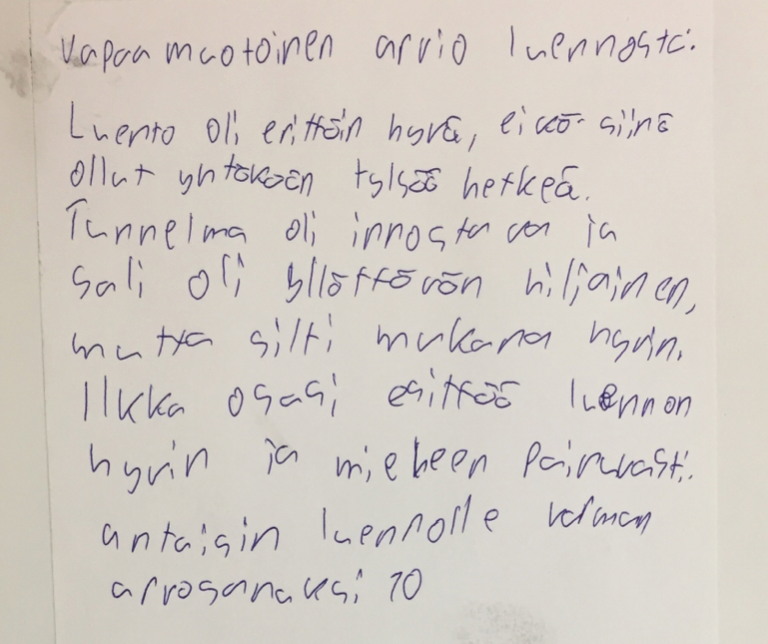 Vapaa muotoinen arvio luennosta:
Luento oli erittäin hyvä, eikä siinä
ollut yhtäkään tylsää hetkeä.
Tunnelma oli innostava ja
Sali oli yllättävän hiljainen,
mutta silti mukana hyvin.
Ilkka osasi esittää luennon
hyvin ja mieheen painuvasti.
antaisin luennolle varman
arvosanaksi 10